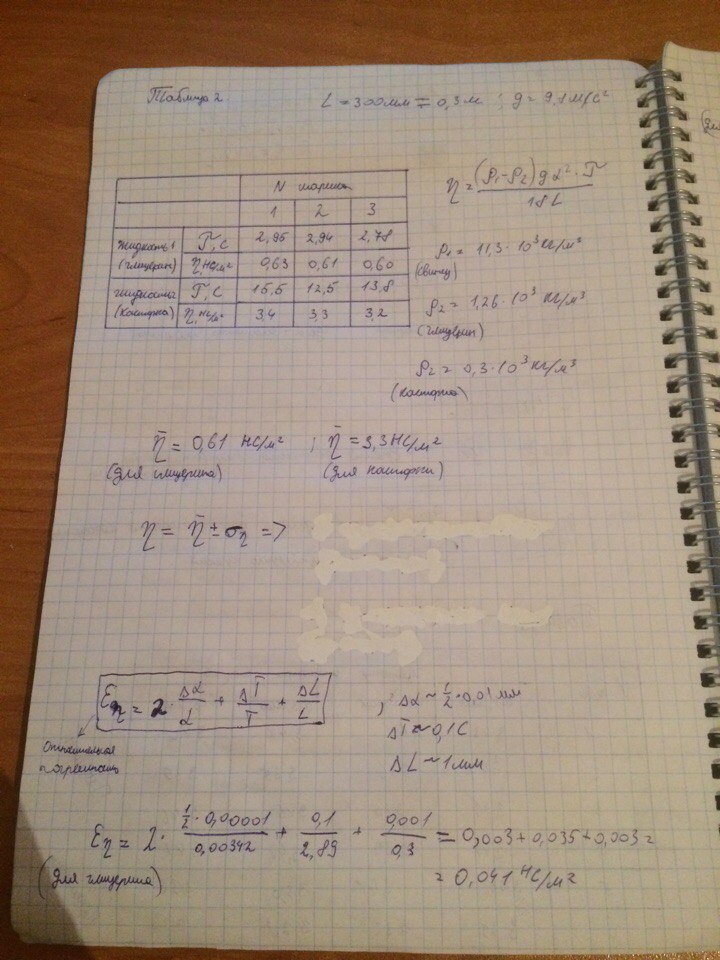 Таблица 2
L = 300 мм = 0,3 м ; g = 9,1 м/с²
N шарика
1 2 3
жидкость 1 (глицерин) T, с 2,95 2,94 2,78
η, Нс/м² 0,63 0,61 0,60
жидкость 2 (касторка) T, с 15,5 12,5 13,8
η, Нс/м² 3,4 3,3 3,2
η = (ρ₁-ρ₂) g d² · T / 18 L
ρ₁ = 11,3 · 10³ кг/м³
(свинец)
ρ₂ = 1,26 · 10³ кг/м³
(глицерин)
ρ₂ = 0,3 · 10³ кг/м³
(касторка)
η̄ = 0,61 Нс/м² ; η̄ = 3,3 Нс/м²
(для глицерина) (для касторки)
η = η̄ ± σ_η =>
ε_η = 2 · Δd/d + ΔT/T + ΔL/L , Δd ~ ½ · 0,01 мм
ΔT ~ 0,1 с
ΔL ~ 1 мм
Относительная
погрешность
ε_η = 2 · ½ · 0,00001 / 0,00342 + 0,1 / 2,89 + 0,001 / 0,3 = 0,003 + 0,035 + 0,003 =
(для глицерина) = 0,041 Нс/м²